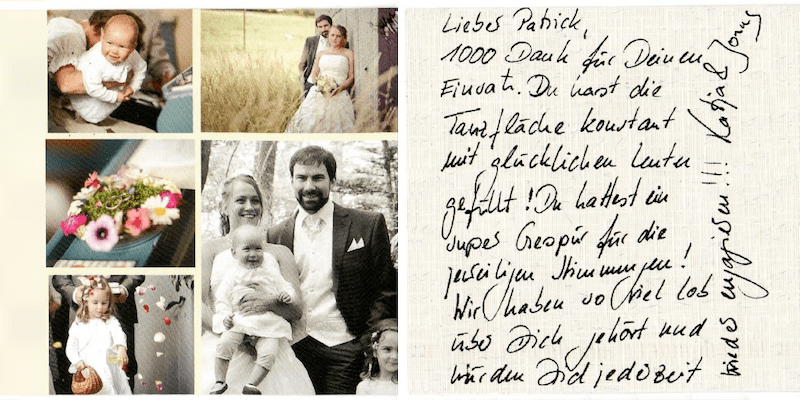 Liebes Patrick,
1000 Dank für Deinen
Einsatz. Du hast die
Tanzfläche konstant
mit glücklichen Leuten
gefüllt! Du hattest ein
super Gespür für die
jeweiligen Stimmungen!
Wir haben so viel Lob
über Dich gehört und
würden Dich jederzeit
wieder engagieren!!! Katja &